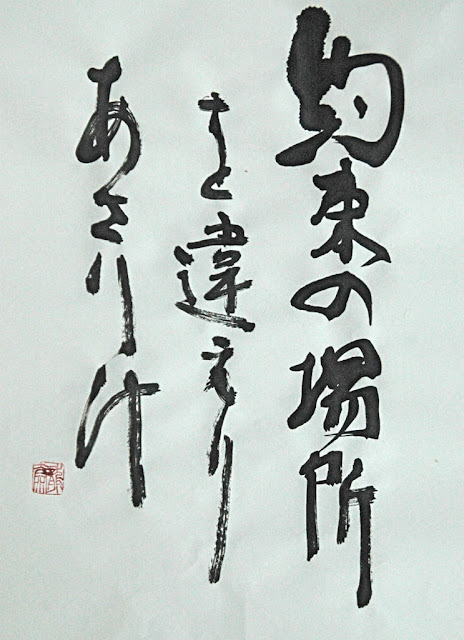 約束の場所
を違えり
あさり汁